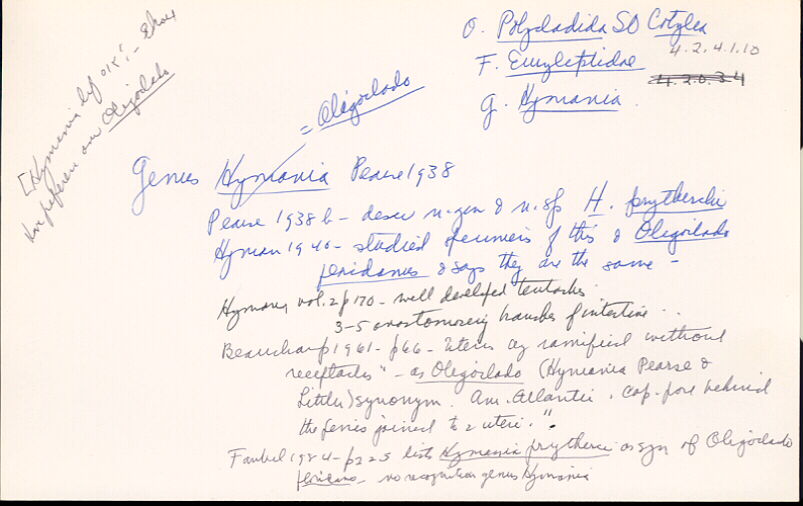 O. Polycladida SO Cotylea
4.2.4.1.10
F. Euryleptidae
4.2.0.34
G. Hymania
= Oligoclado
[Hymania
on Oligoclado
Genus Hymania Pearse 1938
Pearse 1938b - descr n. gen & n. sp H. prytherchi
Hyman 1940 - studied specimens of this & Oligoclado
floridanus & says they are the same -
Hyman vol. 2 p 170 - well developed tentacles
3-5 anastomosing branches of intestine..
Beauchamp 1961 - p66 - Uterus ramified without
receptacles" - as Oligoclado (Hymania Pearse &
Littler) synonym. Am. Atlantic. cop. pore behind
the penis joined to 2 uteri.".
Faubel 1984 - p225 lists Hymania prytherchi as syn of Oligoclado
floridanus - no recognition genus Hymania